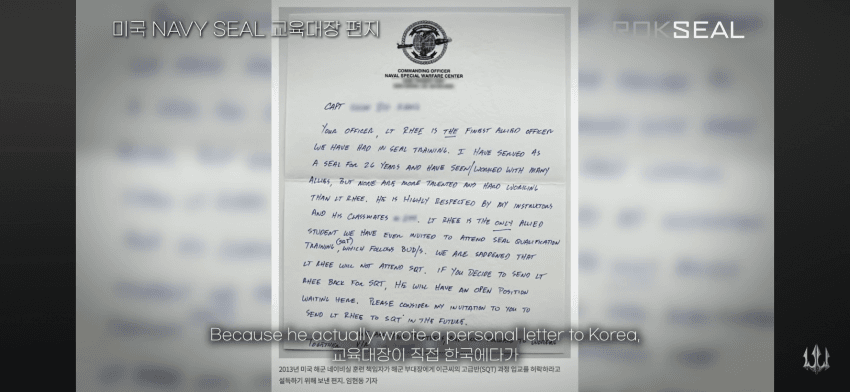 미국 NAVY SEAL 교육대장 편지
ROKSEAL
COMMANDING OFFICER
NAVAL SPECIAL WARFARE CENTER
CAPT
YOUR OFFICER, LT RHEE IS THE FINEST ALLIED OFFICER
WE HAVE HAD IN SEAL TRAINING. I HAVE SERVED AS
A SEAL FOR 26 YEARS AND HAVE SEEN/WORKED WITH MANY
ALLIES, BUT NONE ARE MORE TALENTED AND HARD WORKING
THAN LT RHEE. HE IS HIGHLY RESPECTED BY MY INSTRUCTORS
AND HIS CLASSMATES. LT RHEE IS THE ONLY ALLIED
STUDENT WE HAVE EVER INVITED TO ATTEND SEAL QUALIFICATION
TRAINING (SQT), WHICH FOLLOWS BUD/S. WE ARE SADDENED THAT
LT RHEE WILL NOT ATTEND SQT. IF YOU DECIDE TO SEND LT
RHEE BACK FOR SQT, HE WILL HAVE AN OPEN POSITION
WAITING HERE. PLEASE CONSIDER MY INVITATION TO YOU TO
SEND LT RHEE TO SQT IN THE FUTURE.
Because he actually wrote a personal letter to Korea,
교육대장이 직접 한국에다가
2013년 미국 해군 네이비실 훈련 책임자가 해군 부대장에게 이근씨의 고급반(SQT) 과정 입교를 허락하라고
설득하기 위해 보낸 편지, 임현동 기자